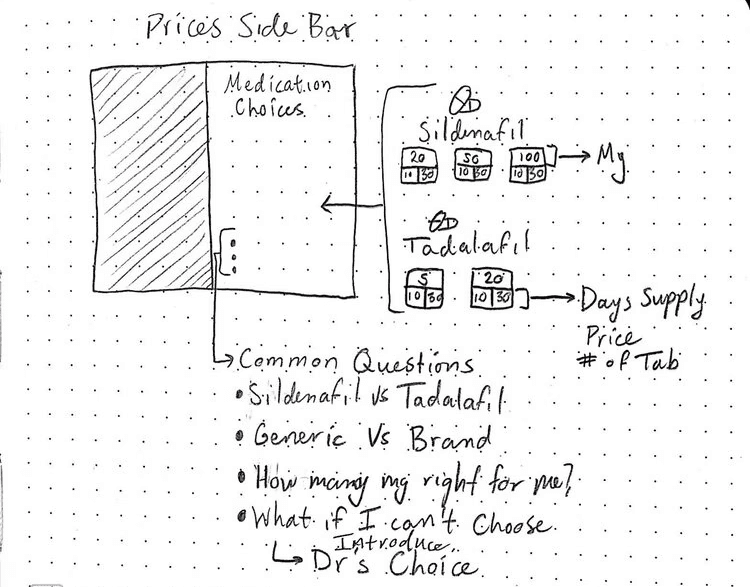 Prices Side Bar
Medication
Choices
Sildenafil
20 50 100
10 30 10 30 10 30
Mg
Tadalafil
5 20
10 30 10 30
Days Supply
Price
# of Tab
Common Questions
• Sildenafil vs Tadalafil
• Generic Vs Brand
• How many mg right for me?
• What if I can't Choose
Introduce
Dr's Choice